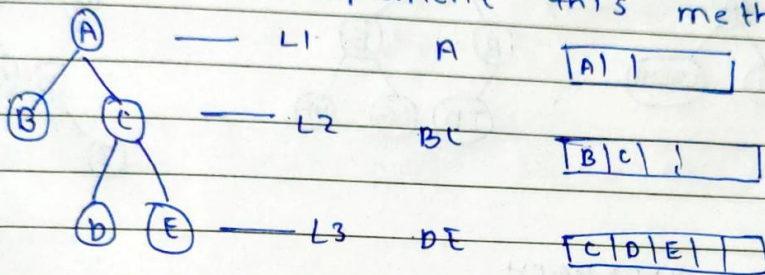 this meth
A — L1 A [A| | ]
B C — L2 BC [B|C| | ]
D E — L3 DE [C|D|E| | ]